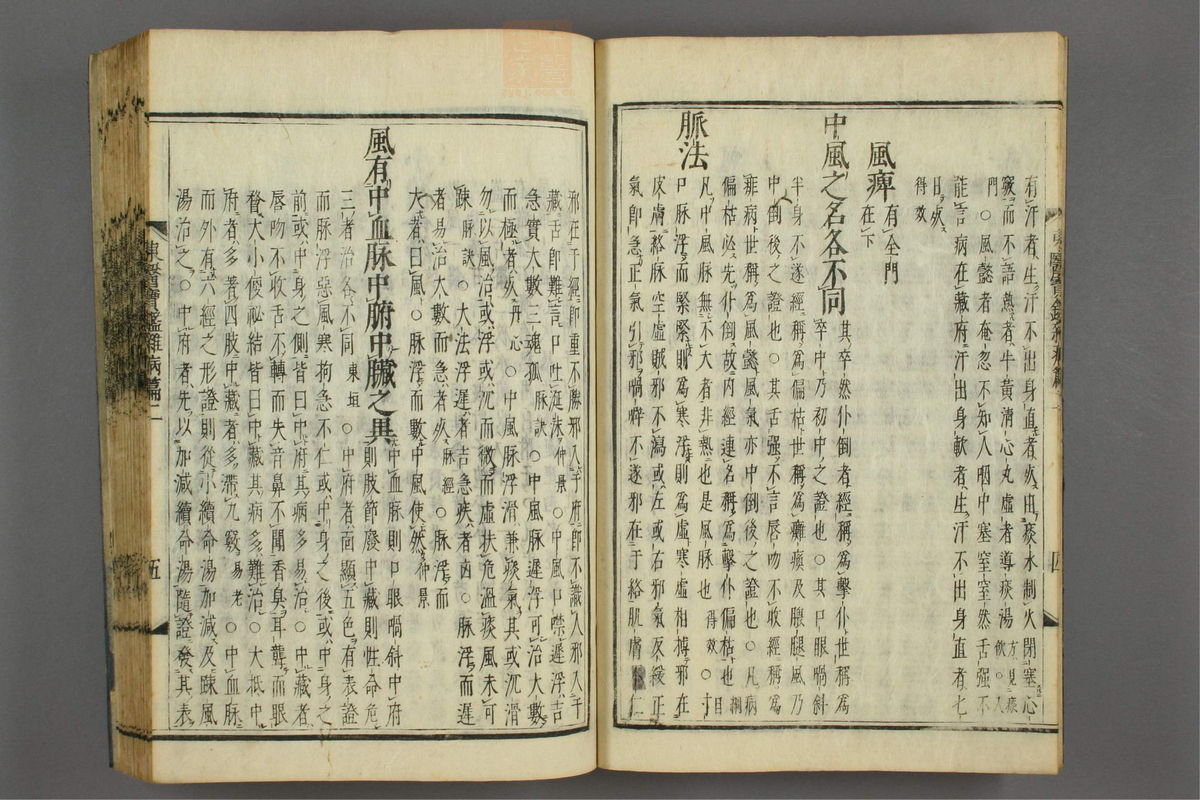 有汗者生汗不出身直者死由痰水制火閉塞心
竅而不語熱者牛黃清心丸虛者導痰湯方見痰飮○入
門○風懿者奄忽不知人咽中塞窒窒然舌强不
能言病在藏府汗出身軟者生汗不出身直者七
日死
得效
風痺有全門在下
中風之名各不同其卒然仆倒者經稱爲擊仆世稱爲
卒中乃初中之證也○其口眼喎斜
半身不遂經稱爲偏枯世稱爲癱瘓及腲腿風乃
中倒後之證也○其舌强不言唇吻不收經稱爲
痱病世稱爲風懿風氣亦中倒後之證也○凡病
偏枯必先仆倒故内經連名稱爲擊仆偏枯也綱目
脈法凡中風脉無不大者非熱也是風脉也得效○寸
口脉浮而緊緊則爲寒浮則爲虛寒虛相搏邪在
皮膚絡脉空虛賊邪不瀉或左或右邪氣反緩正
氣卽急正氣引邪喎噼不遂邪在于絡肌膚不仁
四
邪在于經卽重不勝邪入于府卽不識人邪入于
藏舌卽難言口吐涎沫仲景○中風口噤遲浮吉
急實大數三魂孤脉訣○中風脉遲浮可治大數
而極者死丹心○中風脉浮滑兼痰氣其或沉滑
勿以風治或浮或沉而微而虛扶危溫痰風未可
踈脉訣○大法浮遲者吉急疾者凶○脉浮而遲
者易治大數而急者死脉經○脉浮而
大者曰風○脉浮而數中風使然仲景
風有中血脉中腑中臟之異中血脉則口眼喎斜中府
則肢節廢中藏則性命危
三者治各不同東垣○中府者面顯五色有表證
而脉浮惡風寒拘急不仁或中身之後或中身之
前或中身之側皆曰中府其病多易治○中藏者
唇吻不收舌不轉而失音鼻不聞香臭耳聾而眼
瞀大小便祕結皆曰中藏其病多難治○大抵中
府者多著四肢中藏者多滯九竅易老○中血脉
而外有六經之形證則從小續命湯加減及踈風
湯治之○中府者先以加減續命湯隨證發其表
東醫寶鑑雜病篇二
五